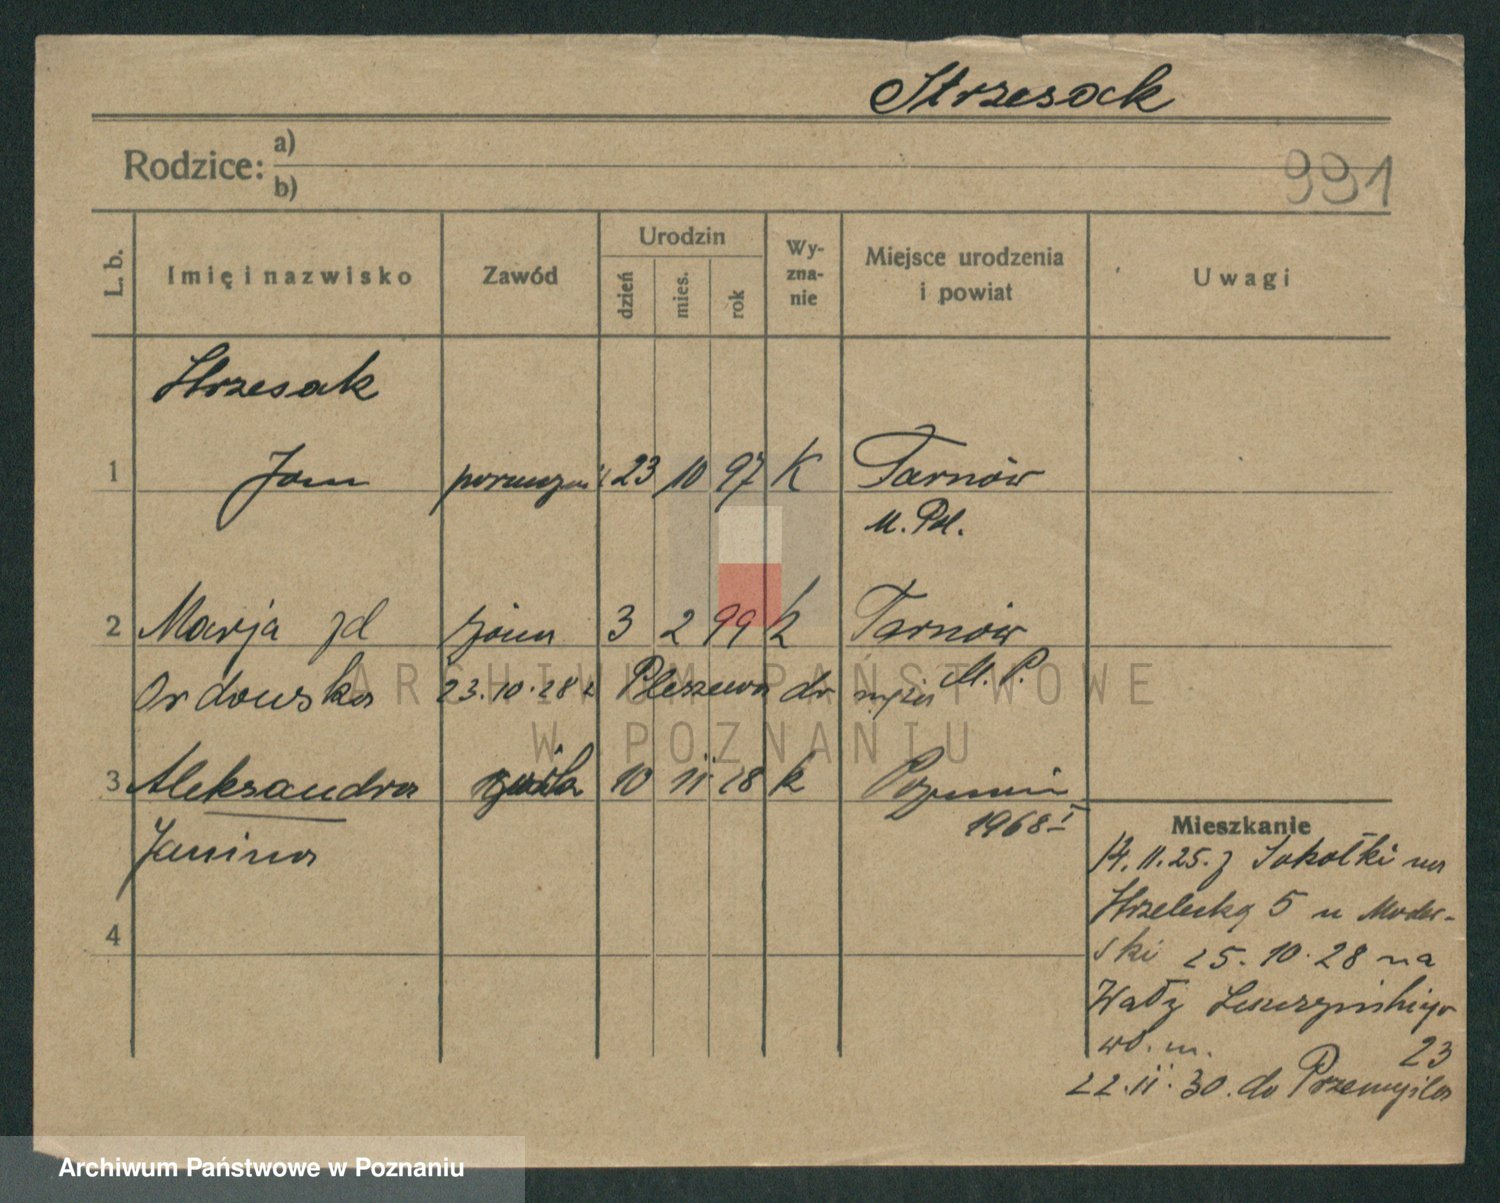 Strzesak
Rodzice: a)
b)
991
L. b.
Imię i nazwisko
Zawód
Urodzin
dzień
mies.
rok
Wy-
zna-
nie
Miejsce urodzenia
i powiat
Uwagi
Strzesak
1 Jan 23 10 97 K Tarnów
M. Pol.
2 Marja zd żona 3 2 99 k Tarnów
M. P.
Ordowska 23.10.28 z Pleszewa do męża
3 Aleksandra córka 10 11 28 k Poznań
1968 I
Janina
4
Mieszkanie
14.11.25. z Sokółki na
Strzelecką 5 u Moder-
ski 25.10.28 na
Wały Leszczyńskiego
wł. m. 23
22.11.30. do Przemyśla
ARCHIWUM PAŃSTWOWE
W POZNANIU
Archiwum Państwowe w Poznaniu